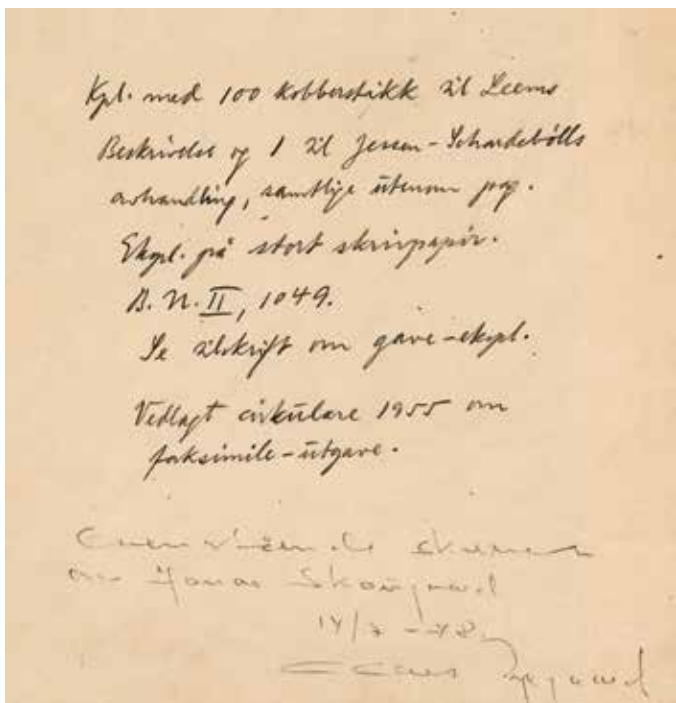 Kpl. med 100 kobberstikk til Leems
Beskrivelse og 1 til Jessen-Schardebølls
avhandling, samtlige utenom pag.
Ekspl. på stort skrivpapir.
B.N. II, 1049.
Se tilskrift om gave-ekspl.
Vedlagt cirkulære 1955 om
faksimile-utgave.
av Jonas Skougaard
14/7 - 48